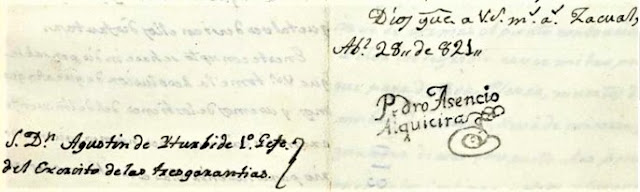 Dios gue. a V.S. m.s a.s Zacual,
Ab.l 28,, de 821,,
Pedro Asencio
Alquicira
S. Dn. Agustin de Yturbide 1.o Gefe
del Exercito de las tres garantias.